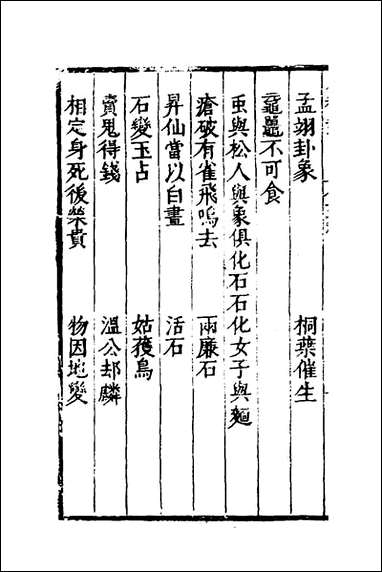 孟翊卦象　桐葉催生
黿鼉不可食
䖝與松人與象俱化石石化女子與麵
瘡破有雀飛鳴去　兩廉石
昇仙當以白晝　活石
石變玉占　姑獲鳥
賣鬼得錢　溫公却麟
相定身死後榮貴　物因地變